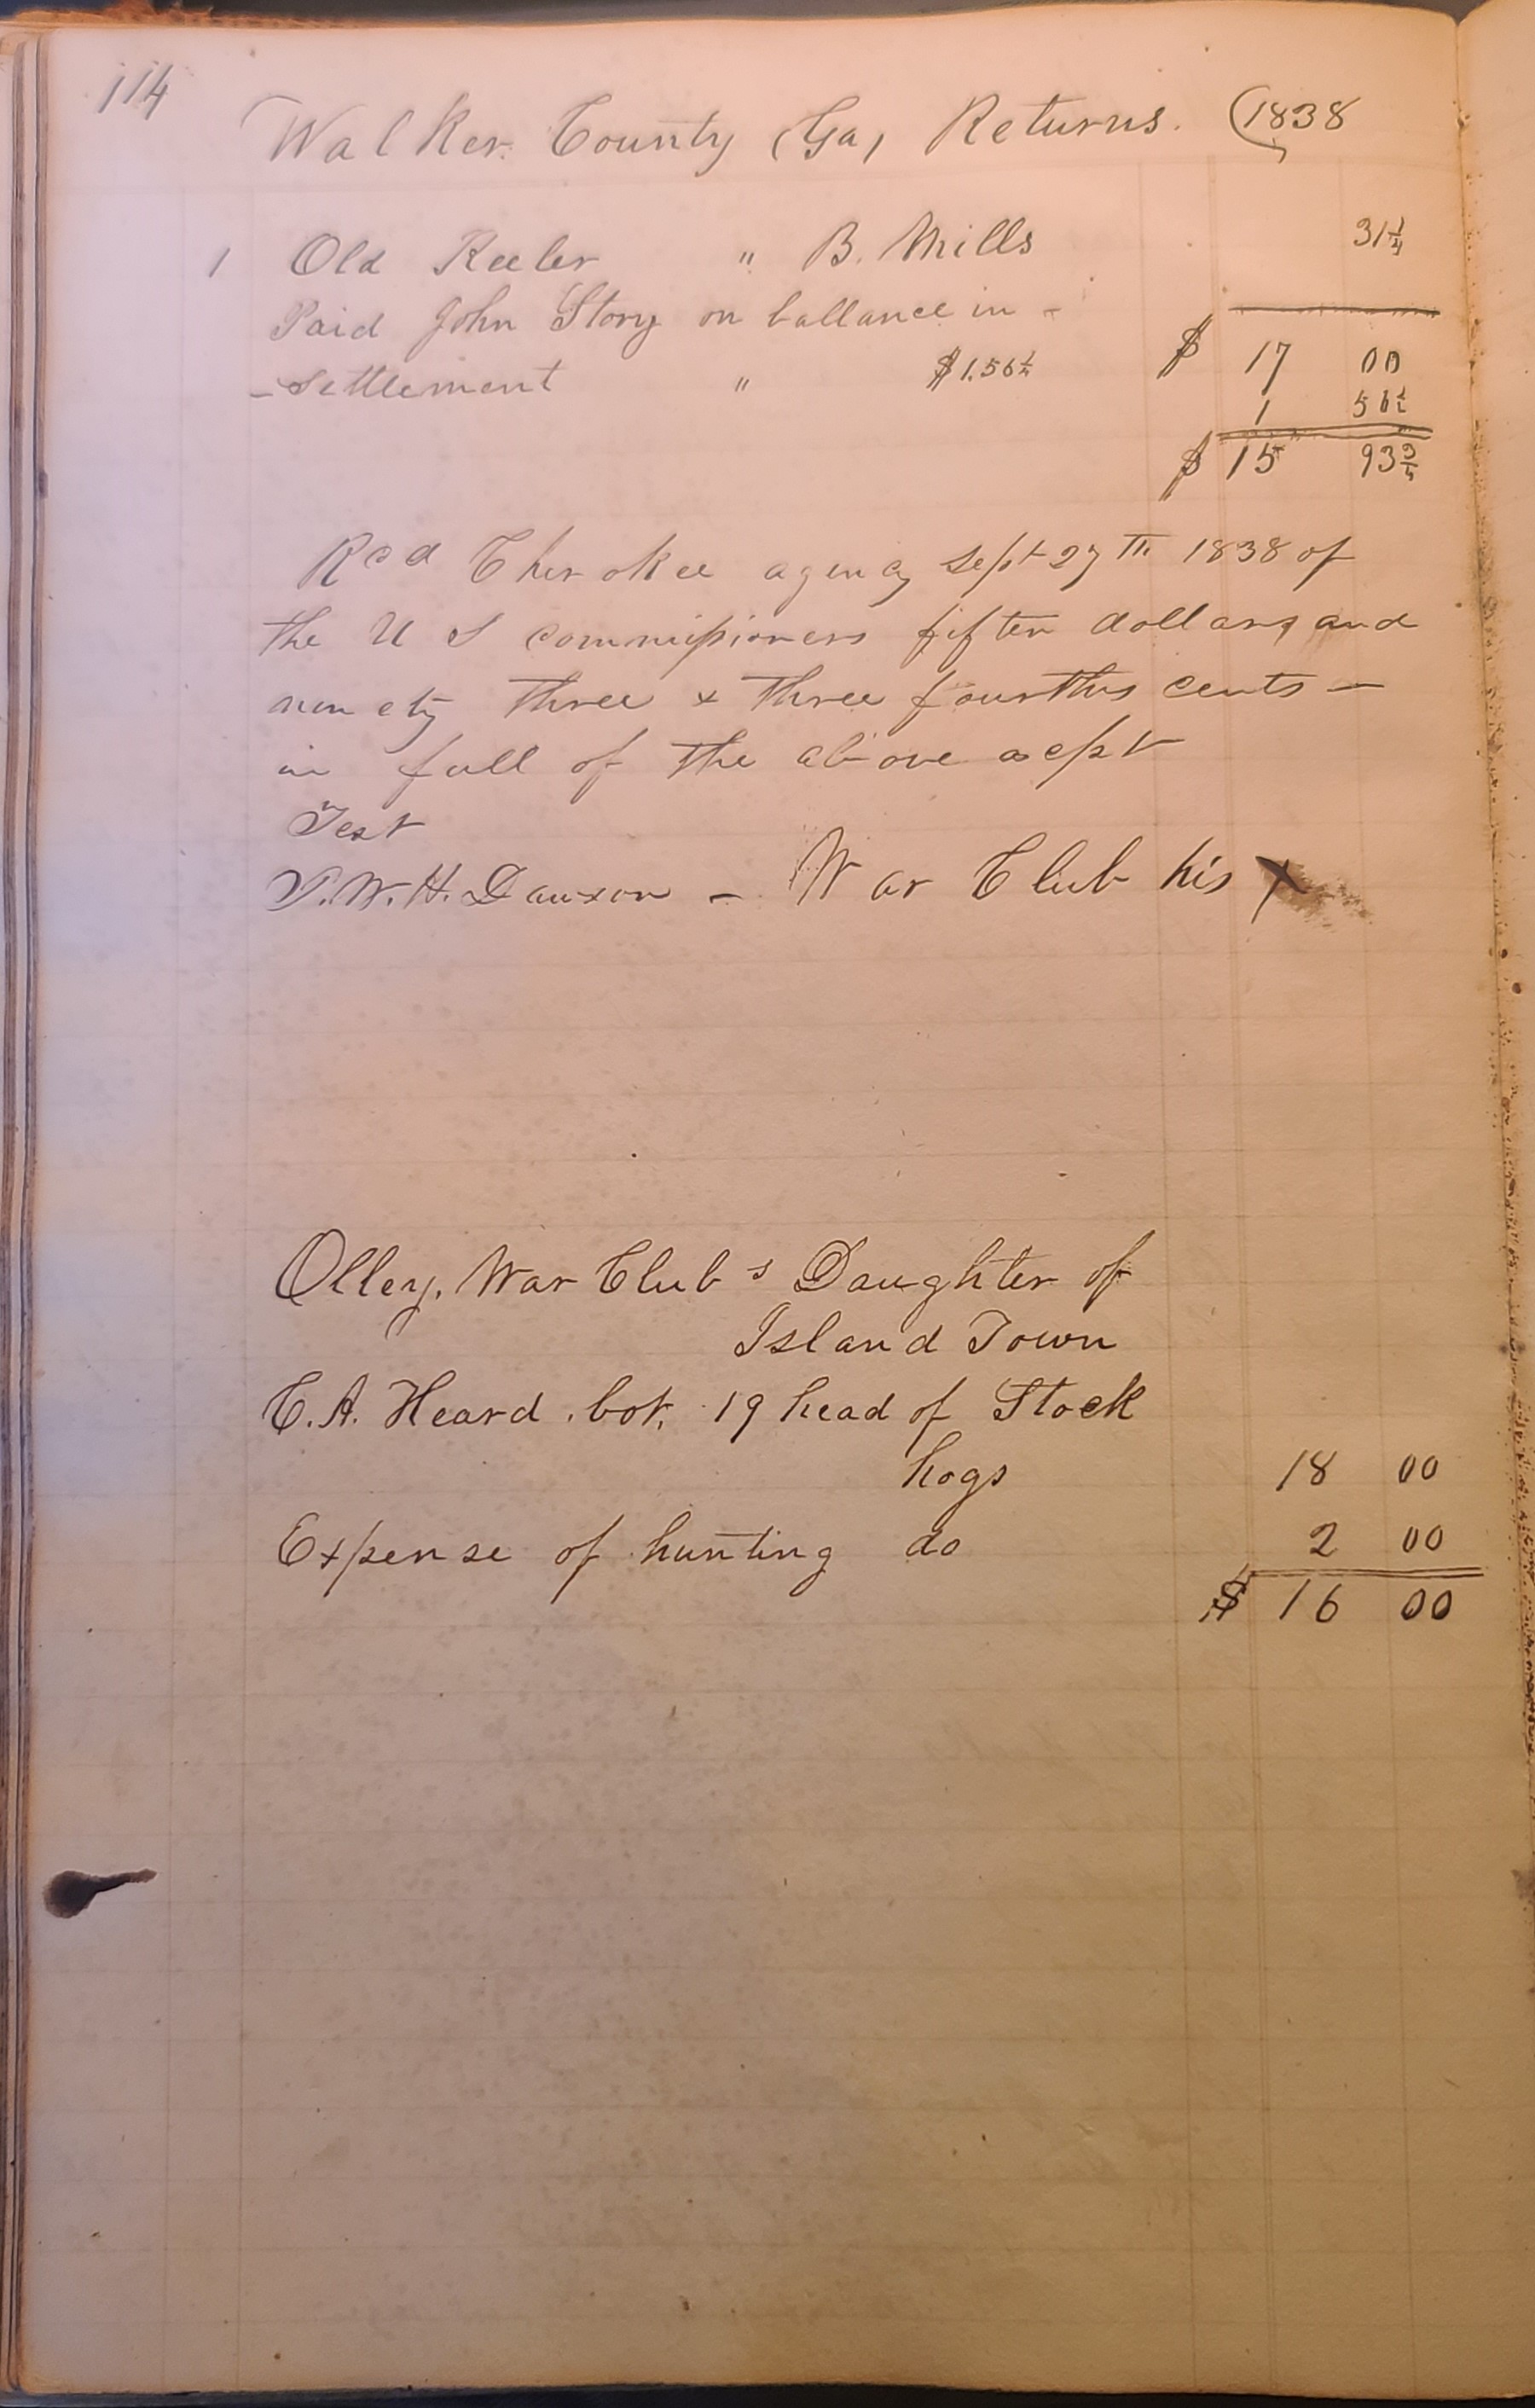 114
Walker County (Ga) Returns. (1838
1 Old Reeler " B. Mills 31 1/4
Paid John Story on ballance in -
- settlement " $1.56 1/4 $ 17 00
1 56 1/4
$ 15 93 3/4
Rcd Cherokee agency Sept 27th 1838 of
the U S commissioners fiften dollars and
ninety three & three fourths cents —
in full of the above
Test
W. H. — War Club his X
Olley, War Club's Daughter of
Island Town
C. A. Heard bot. 19 head of Stock
hogs 18 00
Expense of hunting do 2 00
$ 16 00